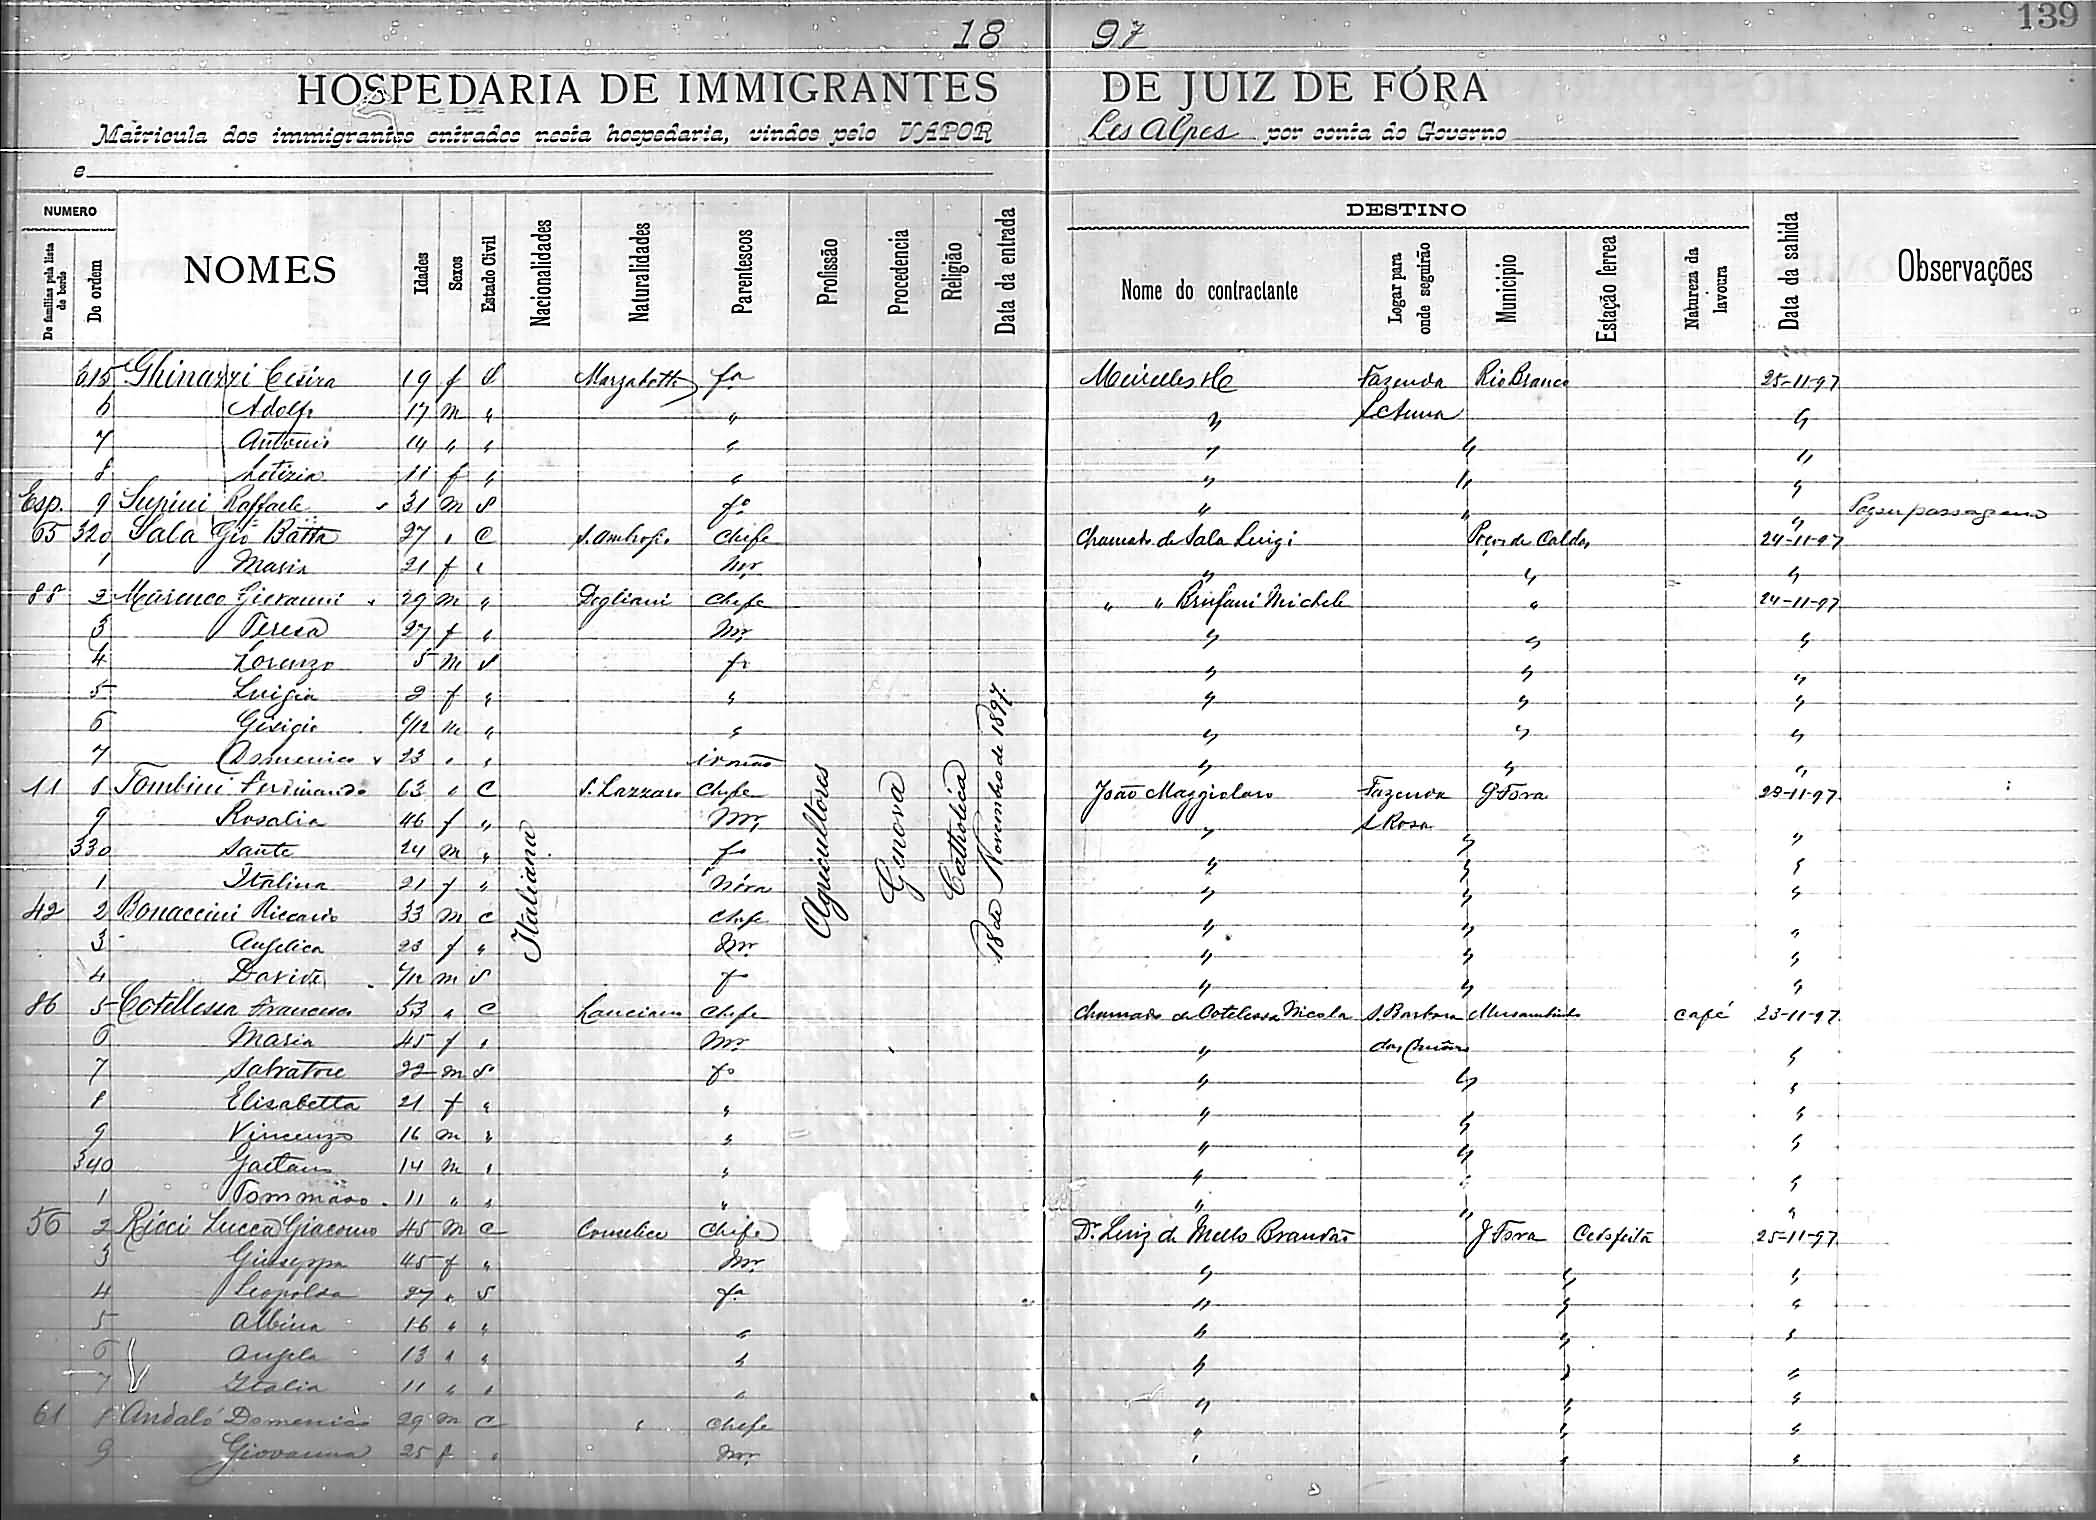 139
18 97
HOSPEDARIA DE IMMIGRANTES DE JUIZ DE FÓRA
Matricula dos immigrantes entrados nesta hospedaria, vindos pelo VAPOR Les Alpes por conta do Governo
e
NUMERO DESTINO
De familias pela lista de bordo De ordem NOMES Idades Sexos Estado Civil Nacionalidades Naturalidades Parentescos Profissão Procedencia Religião Data da entrada Nome do contractante Logar para onde seguirão Municipio Estação ferrea Natureza da lavoura Data da sahida Observações
Italiana Agricultores Genova Catholica 18 de Novembro de 1897.
315 Ghinazzi Cesira 19 f S Marzabotto fa Meirelles & C Fazenda Rio Branco 25-11-97
6 Adolfo 17 m " " " "
7 Antonio 14 " " " " " "
8 Letizia 11 f " " " " "
Esp. 9 Raffaele 31 m S fo " " "
65 320 Sala Gio Batta 27 " C S. Ambrogio Chefe Chamado de Sala Luigi Poços de Caldas 24-11-97
1 Maria 21 f " Mr " " "
88 2 Marenco Giovanni 29 m " Dogliani Chefe " " Brufani Michele " 24-11-97
3 Teresa 27 f " Mr " " "
4 Lorenzo 5 m S fo " " "
5 Luigia 2 f " " " " "
6 m " " " " "
7 Domenico 23 " " irmão " " "
11 8 Tombini Ferdinando 63 " C S. Lazzaro Chefe João Maggiolaro Fazenda J Fora 23-11-97
9 Rosalia 46 f " Mr " S Rosa "
330 Sante 24 m " fo " " "
1 Italina 21 f " Nóra " " "
42 2 Bonaccini Riccardo 33 m C Chefe " " "
3 Angelica 23 f " Mr " " "
4 Davide m S fo " " "
86 5 Cotellessa Francesco 53 " C Lanciano Chefe Chamado de Cotelessa Nicola S. Barbara café 23-11-97
6 Maria 45 f " Mr " das "
7 Salvatore 22 m S fo " " "
8 Elisabetta 21 f " " " " "
9 Vincenzo 16 m " " " " "
340 Gaetano 14 m " " " " "
1 Tommaso 11 " " " " " "
56 2 Ricci Lucca Giacomo 45 m C Conselice Chefe Dr Luiz de Mello Brandão J Fora Cedofeita 25-11-97
3 Giuseppa 45 f " Mr " " "
4 Leopolda 27 " S fa " " "
5 Albina 16 " " " " " "
6 Angela 13 " " " " " "
7 Italia 11 " " " " " "
61 8 Andaló Domenico 29 m C " Chefe " " "
9 Giovanna 25 f " Mr " " "